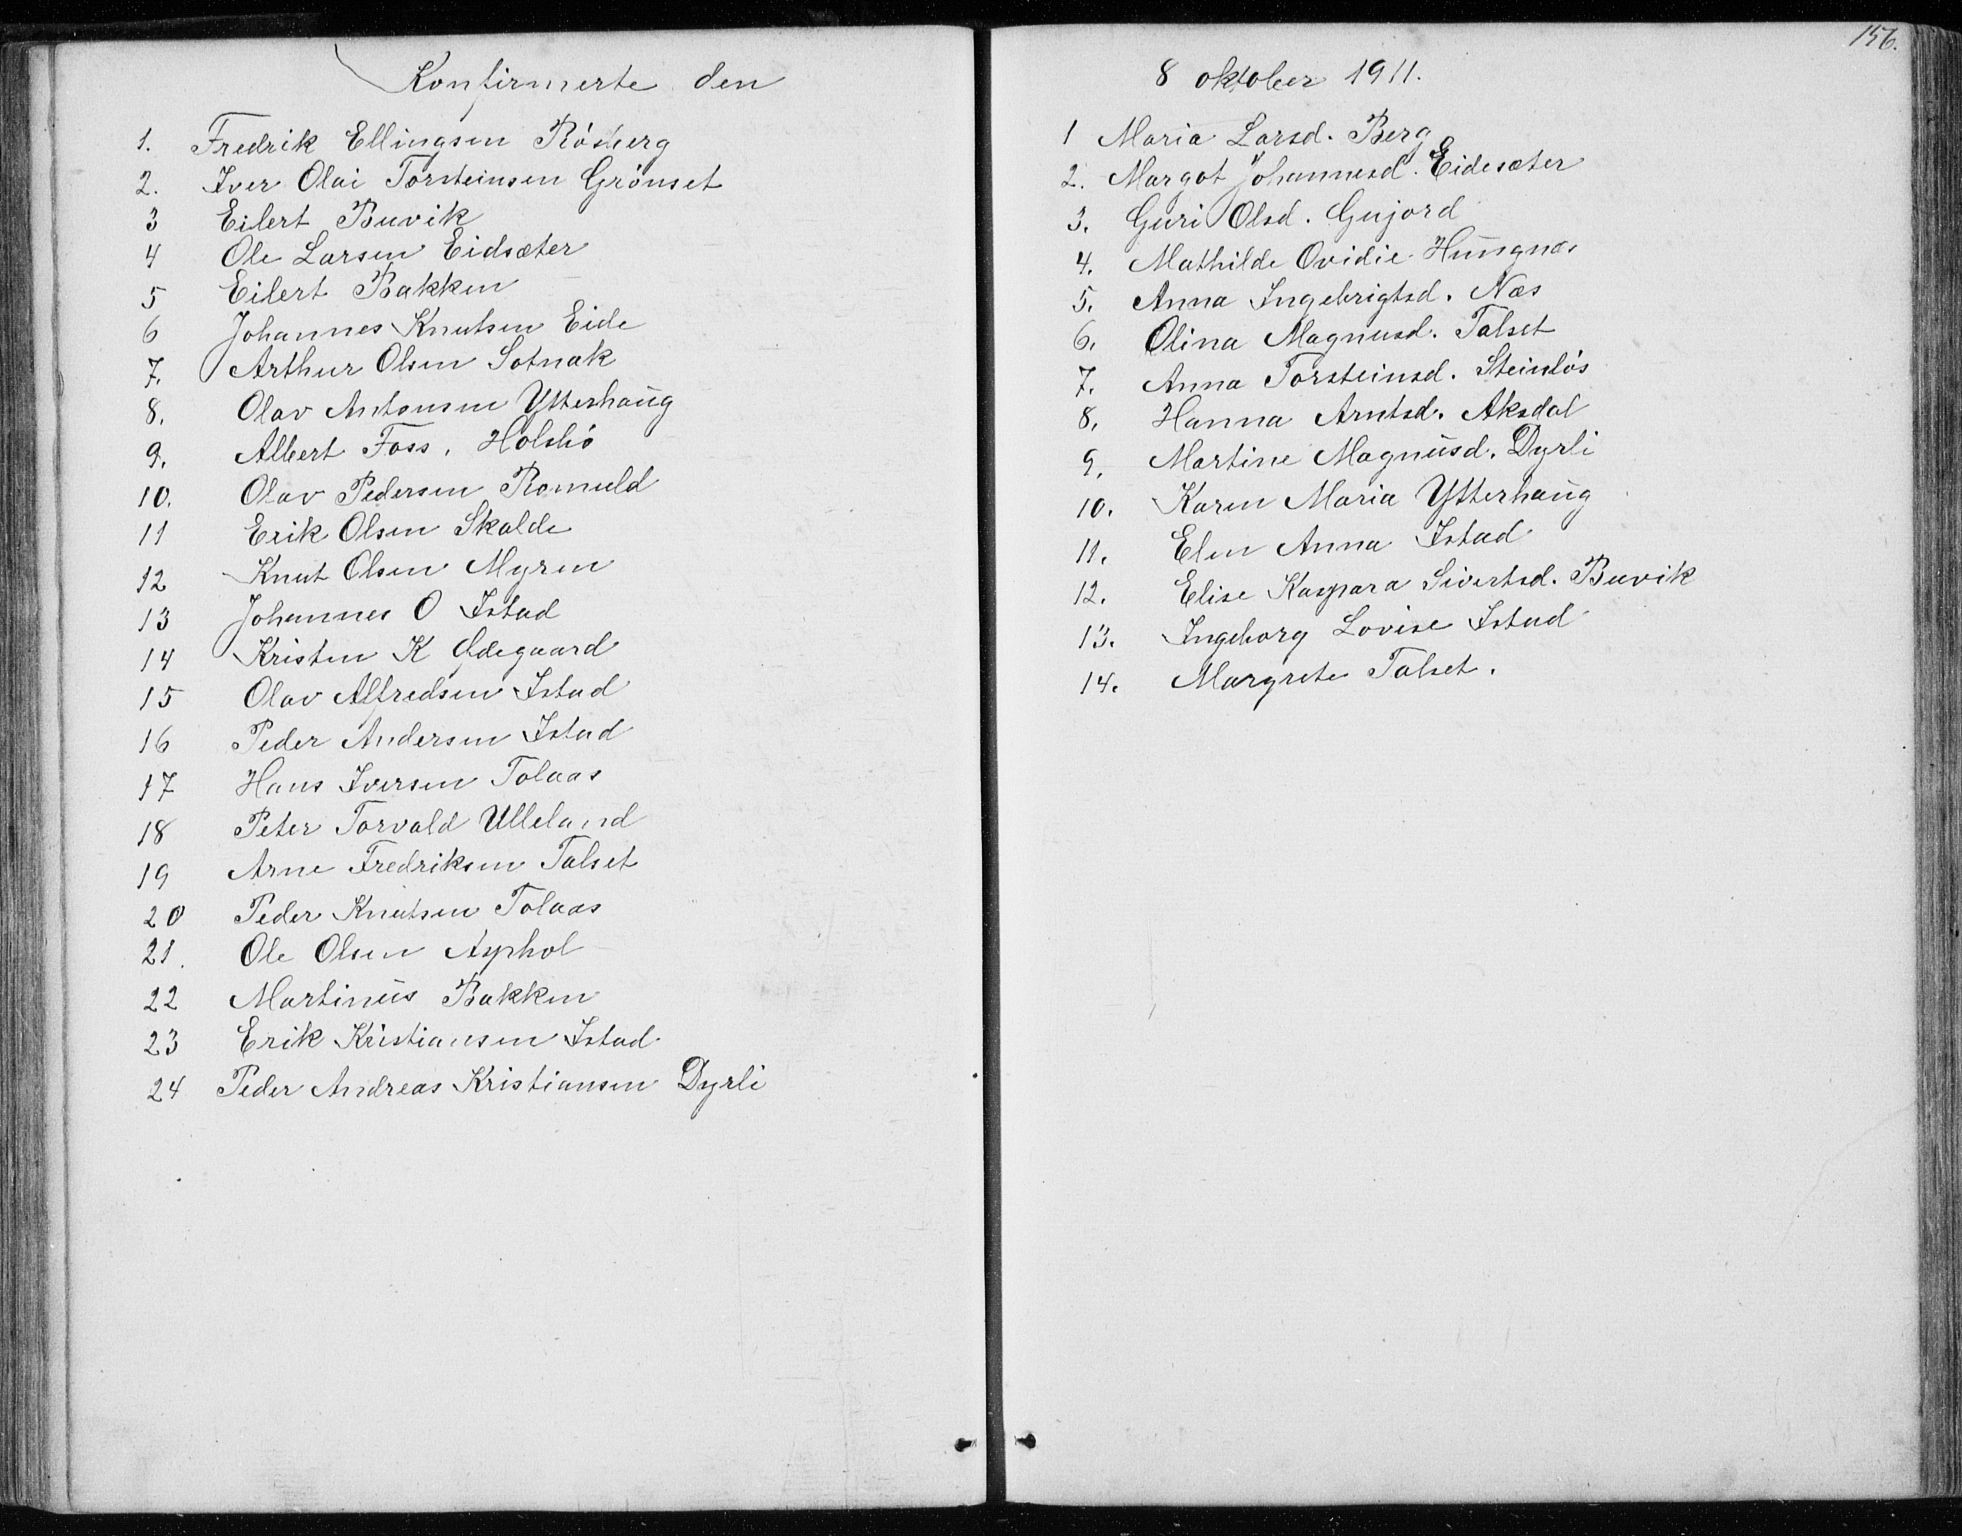 Konfirmerte den
1. Fredrik Ellingsen Rösberg
2. Iver Olai Torsteinsen Grönset
3 Eilert Buvik
4 Ole Larsen Eidsæter
5 Eilert Bakken
6 Johannes Knutsen Eide
7. Arthur Olsen Sotnak
8. Olav Antonsen Ytterhaug
9. Albert Foss, Holsbö
10. Olav Pedersen Romuld
11 Erik Olsen Skalde
12 Knut Olsen Myren
13 Johannes O Istad
14 Kristen K Ødegaard
15 Olav Alfredsen Istad
16 Peder Andersen Istad
17 Hans Iversen Tolaas
18 Peter Torvald Ulleland
19 Arne Fredriksen Talset
20 Peder Knutsen Tolaas
21. Ole Olsen Asphol
22 Martinus Bakken
23 Erik Kristiansen Istad
24 Peder Andreas Kristiansen Dyrli
156.
8 oktober 1911.
1 Maria Larsd. Berg
2. Margot Johannesd. Eidesæter
3. Guri Olsd. Gujord
4. Mathilde Ovidie Hungnes
5. Anna Ingebrigtsd. Næs
6. Olina Magnusd. Talset
7. Anna Torsteinsd. Steinlös
8. Hanna Arntsd. Aksdal
9. Martine Magnusd. Dyrli
10. Karen Maria Ytterhaug
11. Elen Anna Istad
12. Elise Kaspara Sivertsd. Buvik
13. Ingeborg Lovise Istad
14. Margrete Talset.